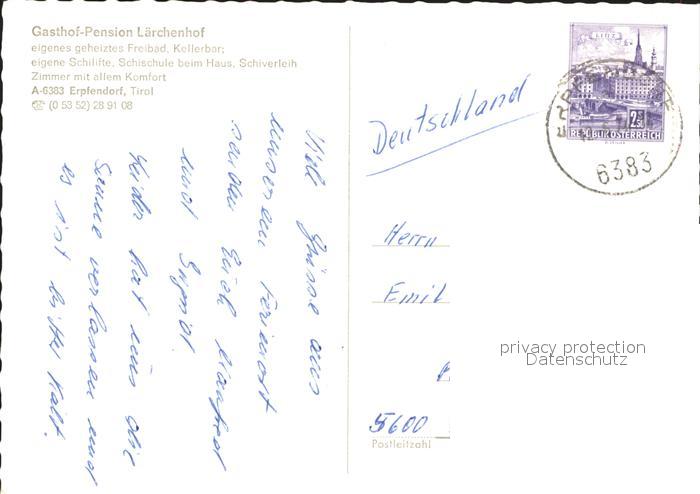 Gasthof-Pension Lärchenhof
eigenes geheiztes Freibad, Kellerbar;
eigene Schilifte, Schischule beim Haus, Schiverleih
Zimmer mit allem Komfort
A-6383 Erpfendorf, Tirol
☏ (0 53 52) 28 91 08
Viele Grüsse aus
unserem Ferienort
senden Euch Manfred
und Sigrid.
Leider hat uns die
Sonne verlassen und
es ist bitter kalt.
Deutschland
LINZ
2.50
REPUBLIK ÖSTERREICH
6383
Herrn
Emil
privacy protection
Datenschutz
5600
Postleitzahl